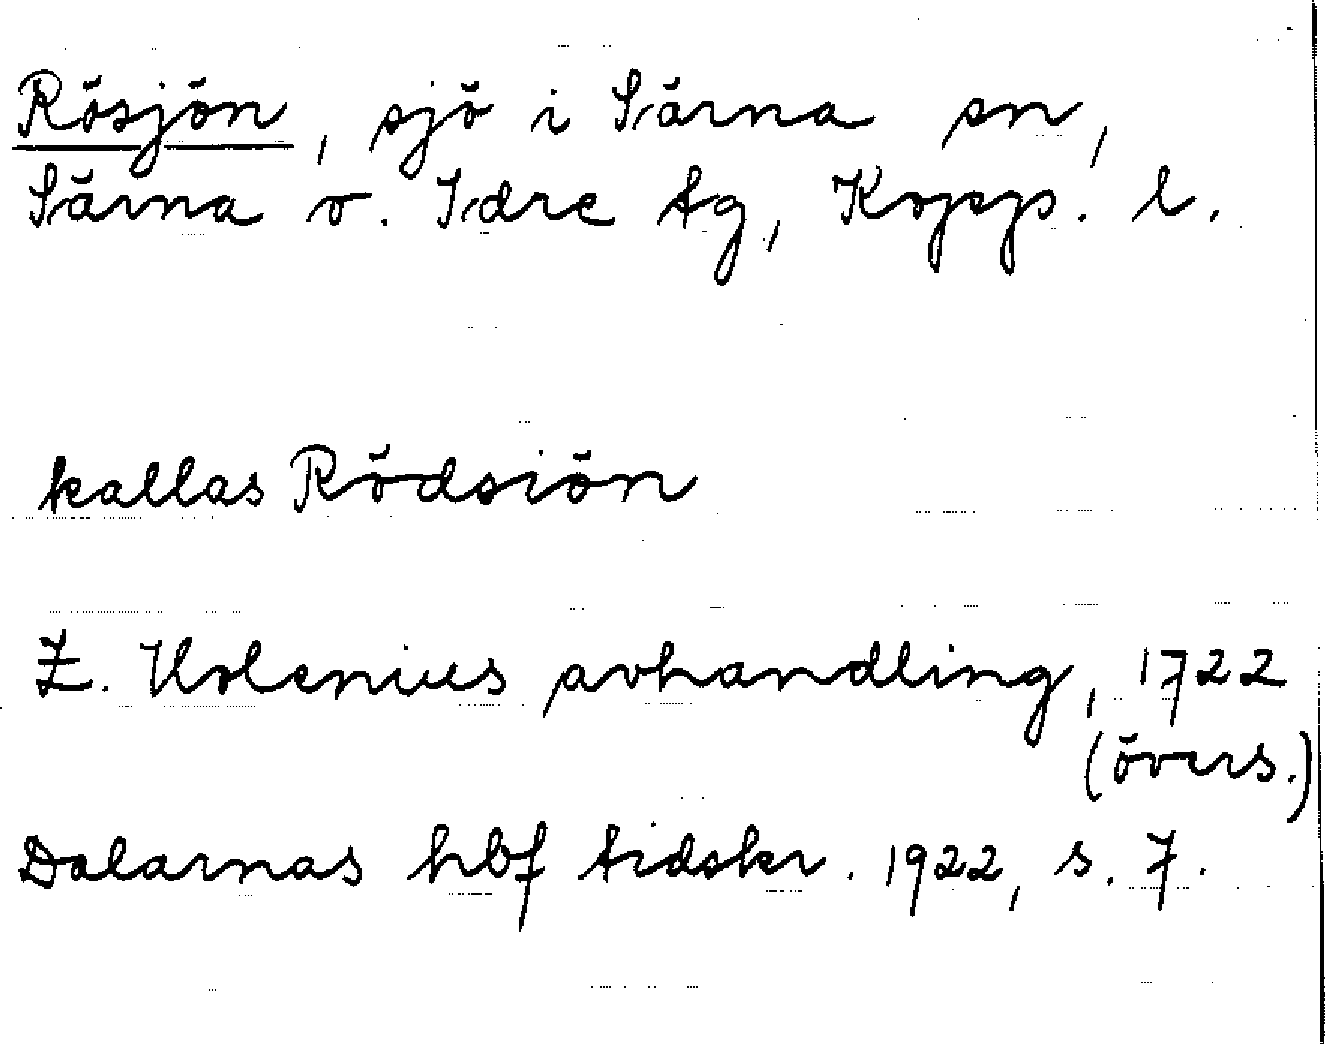 Rösjön, sjö i Särna sn,
Särna o. Idre tg, Kopp. l.
kallas Rödsiön
Z. Holenius avhandling, 1722
(övers.)
Dalarnas hbf tidskr. 1922, s. 7.